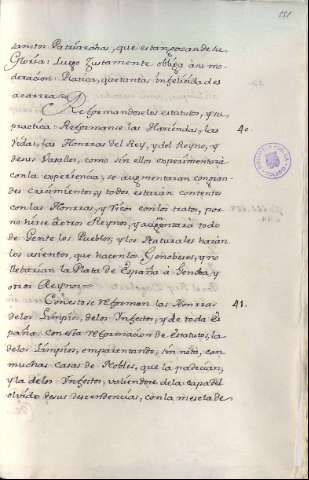 151
tantos Patriarchas, que estan gosando de la
Gloria: Luego justamente obliga à su mo-
deracion Platica, que tanta infelicidades
acarrea.
Reformandose los estatutos, y su
practica. Reformanse las Haciendas, las
40.
Vidas, las Honrras del Rey, y del Reyno, y
de sus Vasallos, como sin ellos experimentarà
con la experiencia; se augmentaran con gran-
des crecimientos, y todos estaran contentos
con las Honrras, y Ricos con los tratos, por
no hirse à otros Reynos, y augmentarà todo
de Gente los Pueblos, y los Naturales haràn
los asientos, que hacen los Genobeses, y no
llebarian la Plata de España à Genoba, y
otros Reynos.
Con esto se reforman las Honrras
41.
de los Limpios, de los Infectos, y de toda Es
paña. Con esta reformacion de Estatutos, la
de los Limpios, emparentando, sin nota, con
muchas casas de Nobles, que la padecian,
y la de los Infectos, valiendose de la capa del
olvido de sus descendencias, con la mescla de